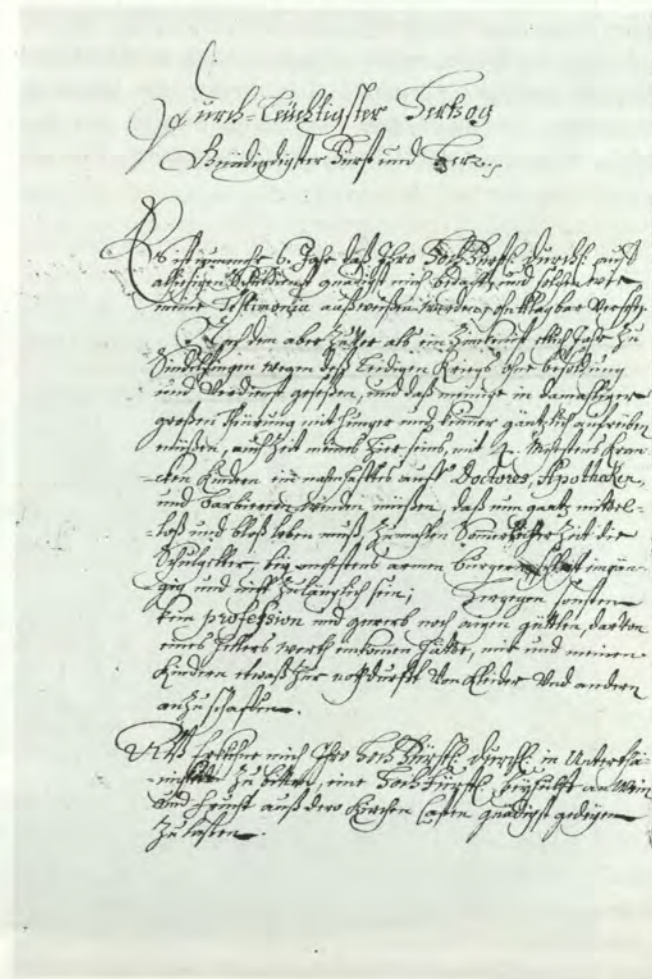 Durch-Leüchtigster Hertzog
Gnädigster Fürst und Herr.
Es ist nunmehr 6. Jahr daß Ihro Hoch Fürstl: Durchl: auff
Schuldienst gnädigst mich und
meine Testimonia außweißen werden,
Nach dem aber als ein Jahr zu
Sindelfingen wegen deß Leidigen Kriegs ohne besoldung
und Verdienst geseßen, und daß meinige in damahliger
großen Theürung mit hunger und kummer gäntzlich aufreiben
müßen, auch Zeit meines hier seins, mit 4. meistens kran
-cken Kindern ein nahmhafftes auff Doctores, Apothecken,
und Barbierern wenden müßen, daß nun gantz mittel-
-loß und bloß leben muß, Zumahlen Sommer Zeit die
Schulgelter, bey meistens armen burgern
-gig und nicht Zulänglich sein; Hergegen sonsten
kein profession und gewerb noch aigen güttlen, darvon
eines Hellers werth einkomen hätte, mir und meinen
Kindern etwaß Zur nothdurfft Von Kleider Und andern
anZuschaffen.
Alß Erkühne mich Ihro Hoch Fürstl: Durchl: in Unterthä-
Zu bitten, eine Hoch Fürstl. Beyhülff an Wein
und Frucht auß dero Kirchen Casten gnädigst gedeyen
Zu laßen.